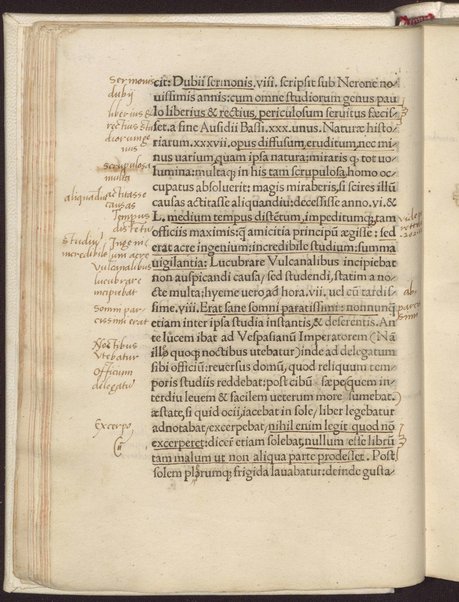 cit: Dubii sermonis .viii. scripsit sub Nerone no-
uissimis annis: cum omne studiorum genus pau
lo liberius & rectius, periculosum seruitus fecis-
set. a fine Aufidii Bassi .xxx. unus. Naturæ histo-
riarum .xxxvii. opus diffusum, eruditum, nec mi-
nus uarium, quam ipsa natura: miraris q̃ tot uo-
lumina: multaq; in his tam scrupulosa, homo oc-
cupatus absoluerit: magis miraberis, si scires illũ
causas actitasse aliquandiu: decessisse anno .vi. &
L. medium tempus distẽtum, impeditumq; tam
officiis maximis: q̃ amicitia principũ ægisse: sed
erat acre ingenium: incredibile studium: summa
uigilantia: Lucubrare Vulcanalibus incipiebat
non auspicandi causa, sed studendi, statim a no-
cte multa: hyeme uero ad hora .vii. uel cũ tardis-
sime .viii. Erat sane somni paratissimi: nonnunq̃
etiam inter ipsa studia instantis, & deserentis. An
te lucem ibat ad Vespasianũ Imperatorem (Nã
ille quoq; noctibus utebatur) inde ad delegatum
sibi officiũ: reuersus domũ, quod reliquum tem-
poris studiis reddebat: post cibũ sæpe (quem in-
terdiu leuem & facilem ueterum more sumebat.
æstate, si quid ocii, iacebat in sole, liber legebatur
adnotabat, excerpebat, nihil enim legit quod nõ
excerperet: dicere etiam solebat, nullum esse librũ
tam malum ut non aliqua parte prodesset. Post
solem plerumq; frigida lauabatur: deinde gusta-
sermonis
dubij
liberius &
rectius stu
diorum ge
nus
scrupulosa
multa
aliquandiu actitasse
causas
Tempus
distentu
studiũ Inge ni
incredibile um acre
Vulcanalibus
lucubrare
incipiebat
somni par
cissimi erat
Noctibus
Vtebatur
Officium
delegatũ
Excerpo